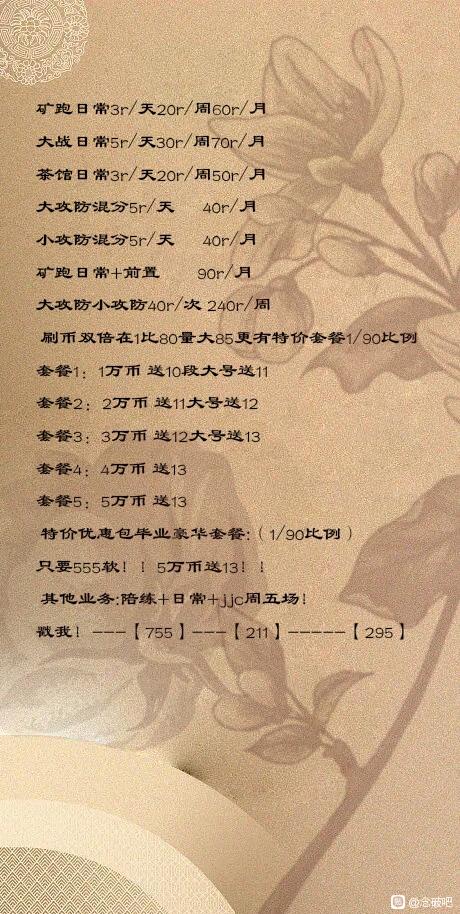 矿跑日常3r/天20r/周60r/月
大战日常5r/天30r/周70r/月
茶馆日常3r/天20r/周50r/月
大攻防混分5r/天 40r/月
小攻防混分5r/天 40r/月
矿跑日常+前置 90r/月
大攻防小攻防40r/次 240r/周
刷币双倍在1比80量大85更有特价套餐1/90比例
套餐1：1万币 送10段大号送11
套餐2：2万币 送11大号送12
套餐3：3万币 送12大号送13
套餐4：4万币 送13
套餐5：5万币 送13
特价优惠包毕业豪华套餐:（1/90比例）
只要555软！！5万币送13！！
其他业务:陪练+日常+jjc周五场！
戳我！---【755】---【211】-----【295】
@念破吧